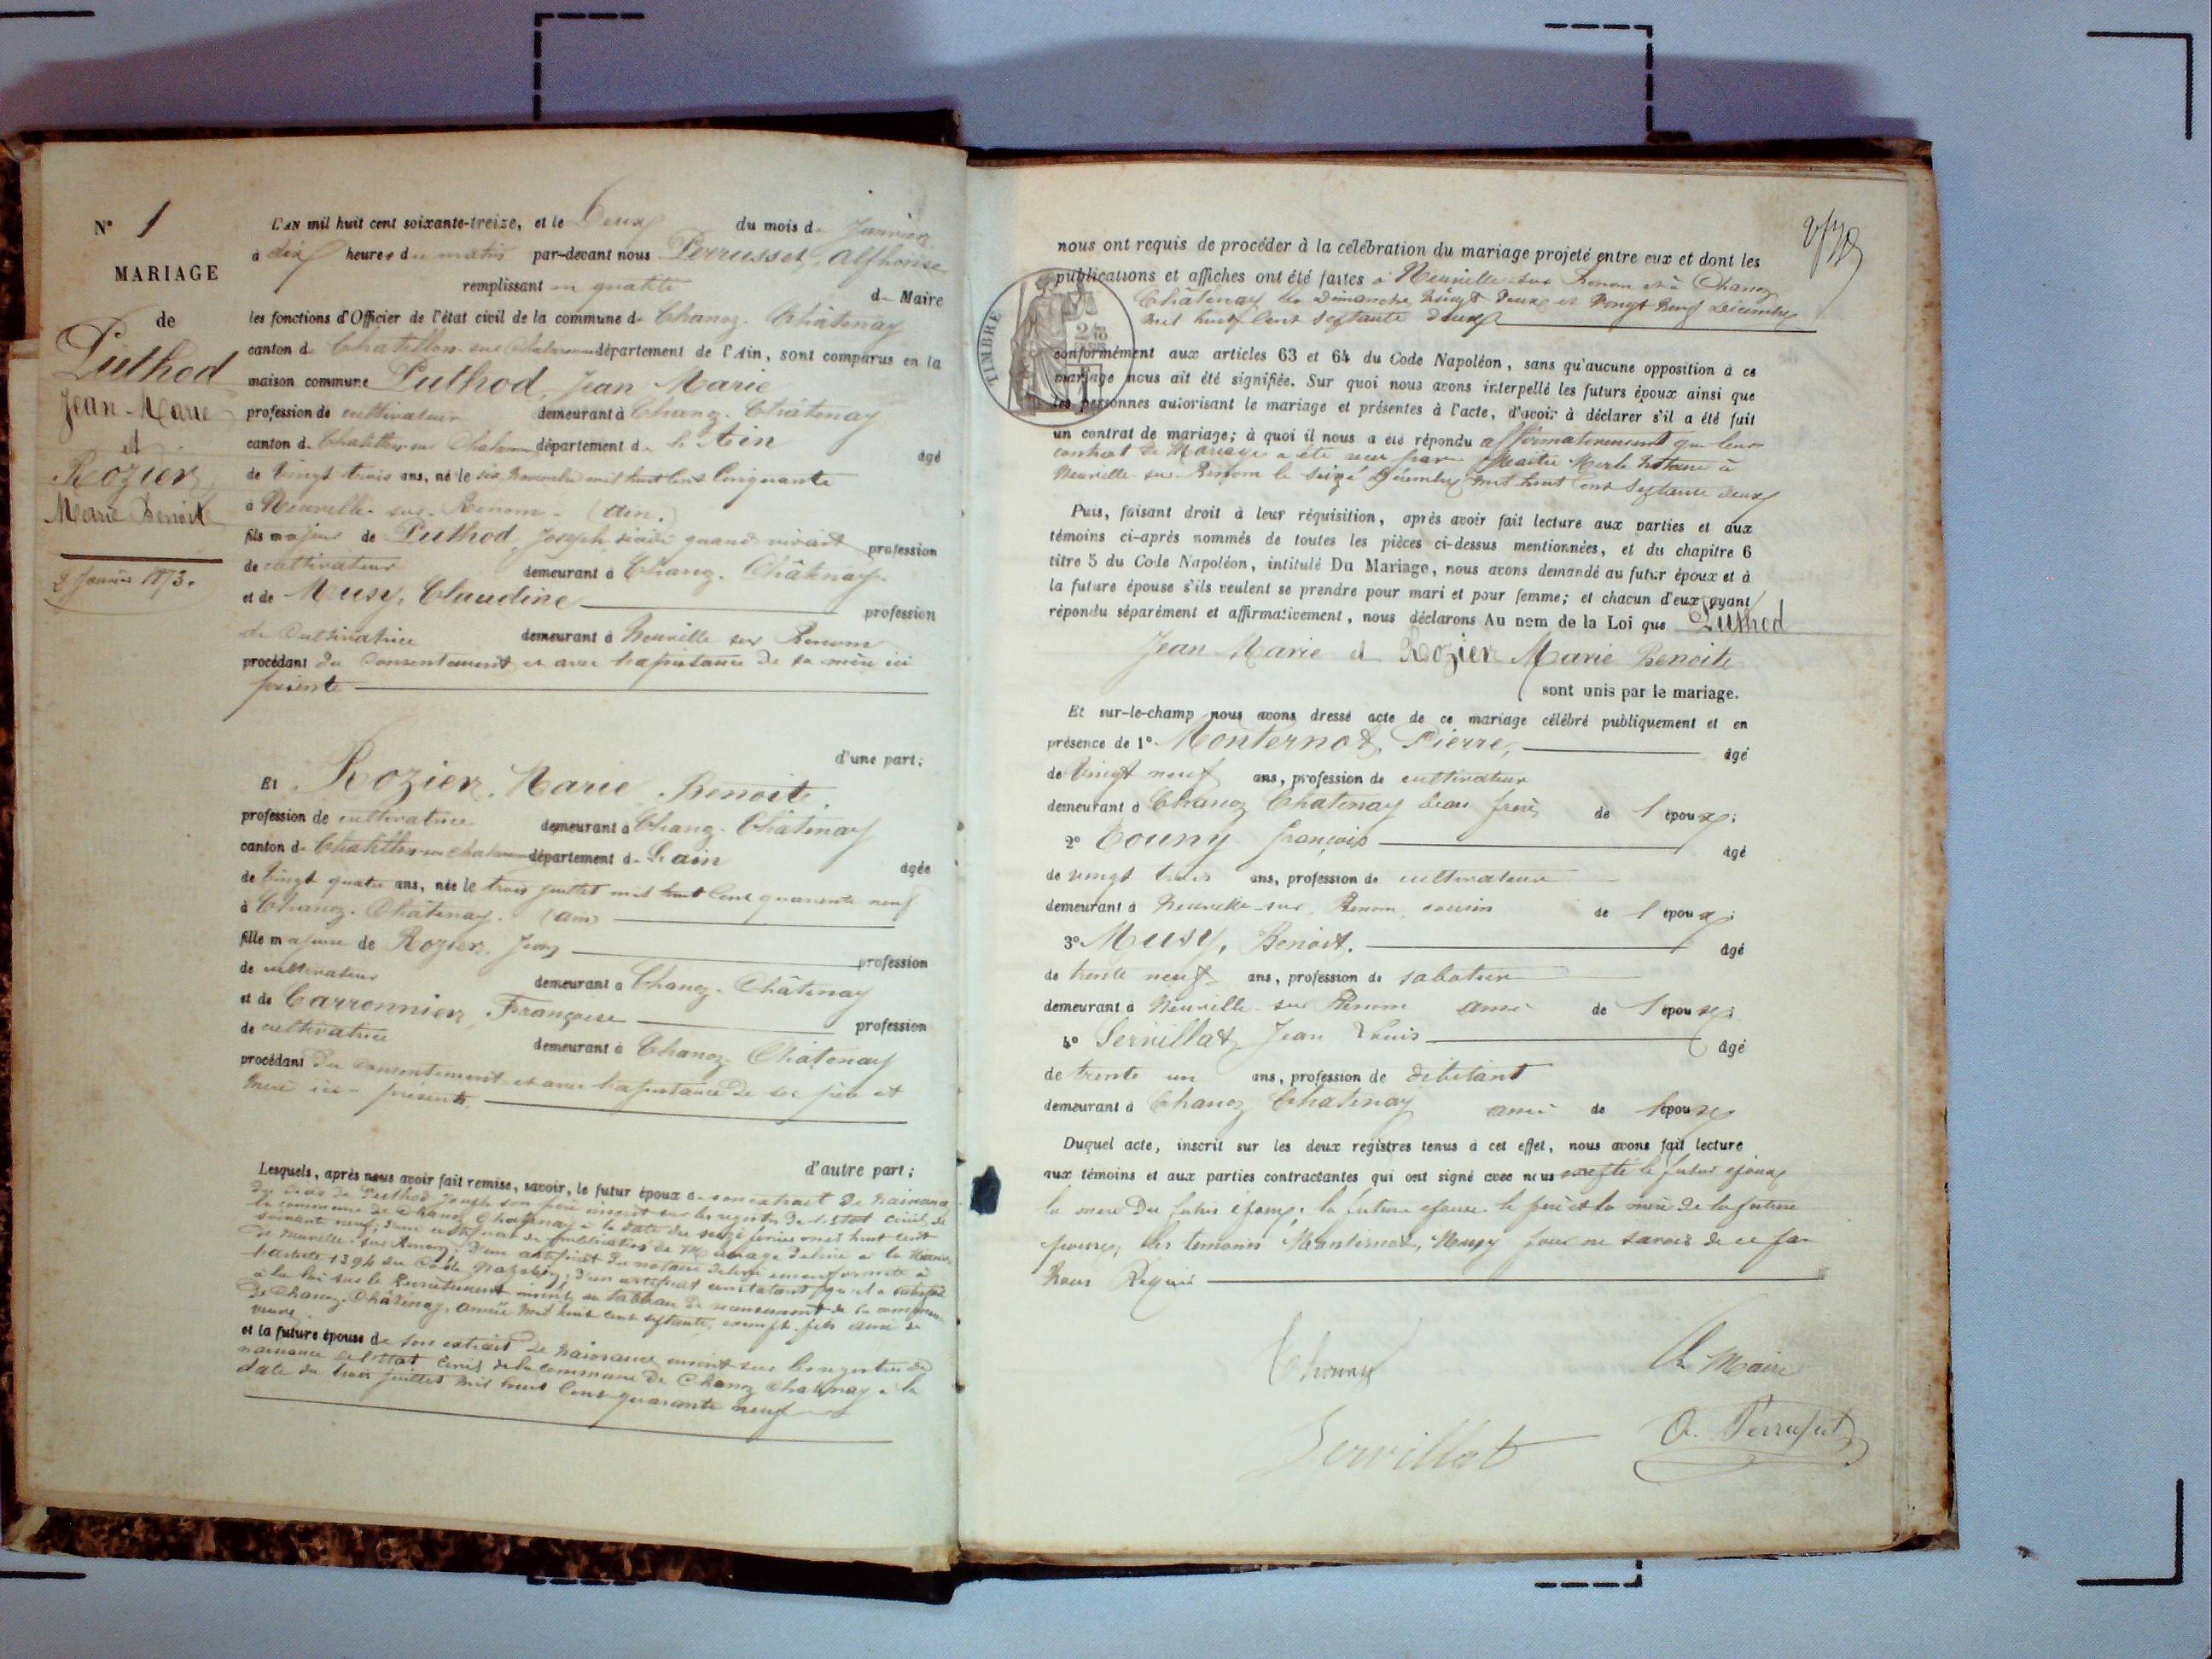 N° 1
MARIAGE
de
Luthod
Jean-Marie
et
Rozier
Marie Benoite
2 Janvier 1873.
L'AN mil huit cent soixante-treize, et le Deux du mois de Janvier
à dix heures du matin par-devant nous Perrusset, Alphonse
remplissant en qualité de Maire
les fonctions d'Officier de l'état civil de la commune de Chanoz-Châtenay
canton de Chatillon-sur-Chalaronne département de l'Ain, sont comparus en la
maison commune Luthod, Jean Marie
profession de cultivateur demeurant à Chanoz-Châtenay
canton de Chatillon sur Chalaronne département de L'Ain âgé
de vingt-trois ans, né le six Novembre mil huit cent Cinquante
à Neuville-sur-Renom-(Ain.)
fils majeur de Luthod, Joseph décédé quand vivait profession
de cultivateur demeurant à Chanoz-Châtenay
et de Musy, Claudine profession
de Cultivatrice demeurant à Neuville sur Renom
procédant du consentement et avec l'assistance de sa mère ici
présente
d'une part;
Et Rozier, Marie Benoite,
profession de cultivatrice demeurant à Chanoz-Châtenay
canton de Chatillon-sur Chalaronne département de L'ain âgée
de vingt quatre ans, née le trois juillet mil huit cent quarante neuf
à Chanoz-Châtenay. (ain)
fille majeure de Rozier, Jean profession
de cultivateur demeurant à Chanoz-Châtenay
et de Carronnier, Françoise profession
de cultivatrice demeurant à Chanoz-Châtenay
procédant du consentement et avec l'assistance de ses père et
mère ici-présents.
d'autre part;
Lesquels, après nous avoir fait remise, savoir, le futur époux de son extrait de naissance
du décès de Luthod Joseph son père inscrit sur les registres de l'état civil de
la commune de Chanoz Chatenay à la date du seize février mil huit cent
soixante neuf; d'un certificat de publication de Mariage délivré à la Mairie
de Neuville-sur Renom; d'un certificat du notaire délivré conformément à
l'article 1394 du Code Napoléon; d'un certificat constatant qu'il a satisfait
à la loi sur le Recrutement inscrit au tableau de recensement de la commune
de Chanoz-Châtenay, année mil huit cent septante, exempt fils ainé de
veuve
et la future épouse de son extrait de naissance inscrit sur les registres de
naissance de l'Etat Civil de la commune de Chanoz Chatenay à la
date du trois juillet mil huit cent quarante neuf
nous ont requis de procéder à la célébration du mariage projeté entre eux et dont les
publications et affiches ont été faites à Neuville-sur Renom et à Chanoz
Châtenay les Dimanche Vingt Deux et Vingt Neuf Décembre
mil huit Cent Septante deux
TIMBRE
conformément aux articles 63 et 64 du Code Napoléon, sans qu'aucune opposition à ce
mariage nous ait été signifiée. Sur quoi nous avons interpellé les futurs époux ainsi que
les personnes autorisant le mariage et présentes à l'acte, d'avoir à déclarer s'il a été fait
un contrat de mariage; à quoi il nous a été répondu affirmativement que leur
contrat de Mariage a été reçu par Maître Merle Notaire à
Neuville-sur-Renom le Seize Décembre mil huit cent Septante deux
Puis, faisant droit à leur réquisition, après avoir fait lecture aux parties et aux
témoins ci-après nommés de toutes les pièces ci-dessus mentionnées, et du chapitre 6
titre 5 du Code Napoléon, intitulé Du Mariage, nous avons demandé au futur époux et à
la future épouse s'ils veulent se prendre pour mari et pour femme; et chacun d'eux ayant
répondu séparément et affirmativement, nous déclarons Au nom de la Loi que Luthod
Jean-Marie et Rozier Marie Benoite
sont unis par le mariage.
Et sur-le-champ nous avons dressé acte de ce mariage célébré publiquement et en
présence de 1° Monternot, Pierre, âgé
de vingt neuf ans, profession de cultivateur
demeurant à Chanoz Chatenay beau frère de l'époux;
2° Touny François âgé
de vingt trois ans, profession de cultivateur
demeurant à Neuville-sur Renom, cousin de l'époux;
3° Musy, Benoit. âgé
de trente neuf ans, profession de sabotier
demeurant à Neuville-sur Renom ami de l'époux;
4° Servillat, Jean Louis âgé
de trente un ans, profession de débitant
demeurant à Chanoz Chatenay ami de l'époux
Duquel acte, inscrit sur les deux registres tenus à cet effet, nous avons fait lecture
aux témoins et aux parties contractantes qui ont signé avec nous excepté le futur époux
la mère du futur époux; la future épouse le père et la mère de la future
épouse, les temoins Monternot, Musy pour ne savoir de ce fait
Nous Requis
Le Maire
Servillat
A. Perrusset